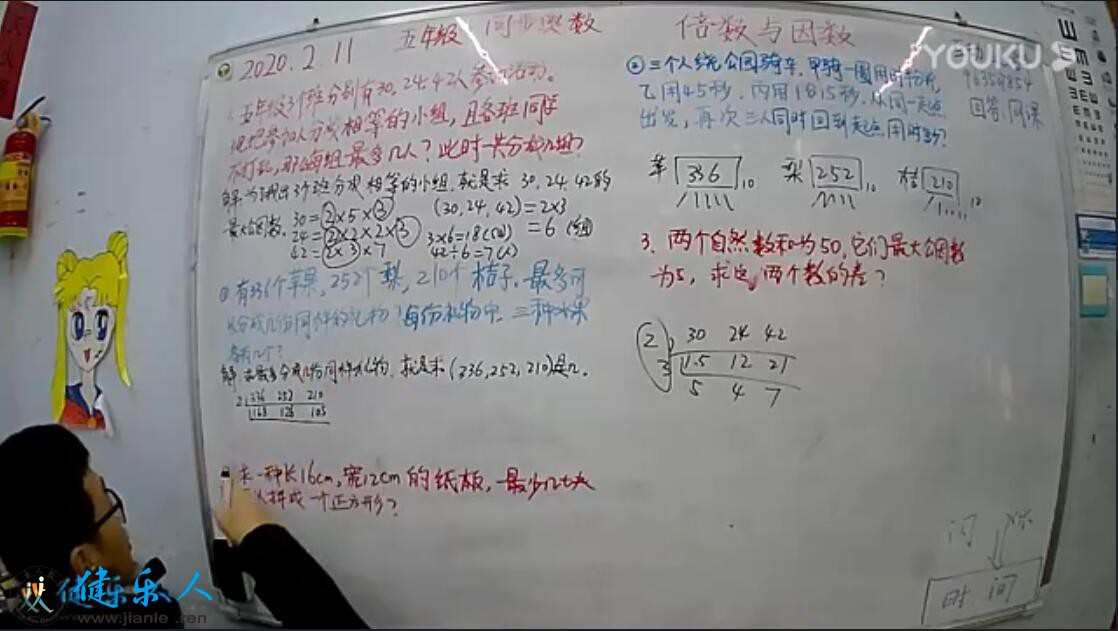 2020.2.11
五年级 同步奥数
倍数与因数
YOUKU
1.五年级3个班分别有30,24,42人参加活动。
现把参加人分成相等的小组,且各班同学
不打乱,那么每组最多几人?此时一共分成几组?
30,24,42的
最大公因数。
30=2×5×3
24=2×2×2×3
42=2×3×7
(30,24,42)=2×3
=6
3×6=18
42÷6=7(人)
有336个苹果,252个梨,210个桔子。最多可
以分成几份同样的礼物?每份礼物中,三种水果
各有几个?
就是求(336,252,210)是几。
2 336 252 210
168 126 105
一种长16cm,宽12cm的纸板,最少几块
拼成一个正方形?
三个人绕公园骑车,甲骑一圈用时
出发,再次三人同时回到起点用时多少?
回答 网课
苹 336 10
梨 252 10
桔 210 10
3.两个自然数和为50,它们最大公因数
为5,求这两个数的差?
2 30 24 42
3 15 12 21
5 4 7
时间
健乐乐人
www.jianle .ren